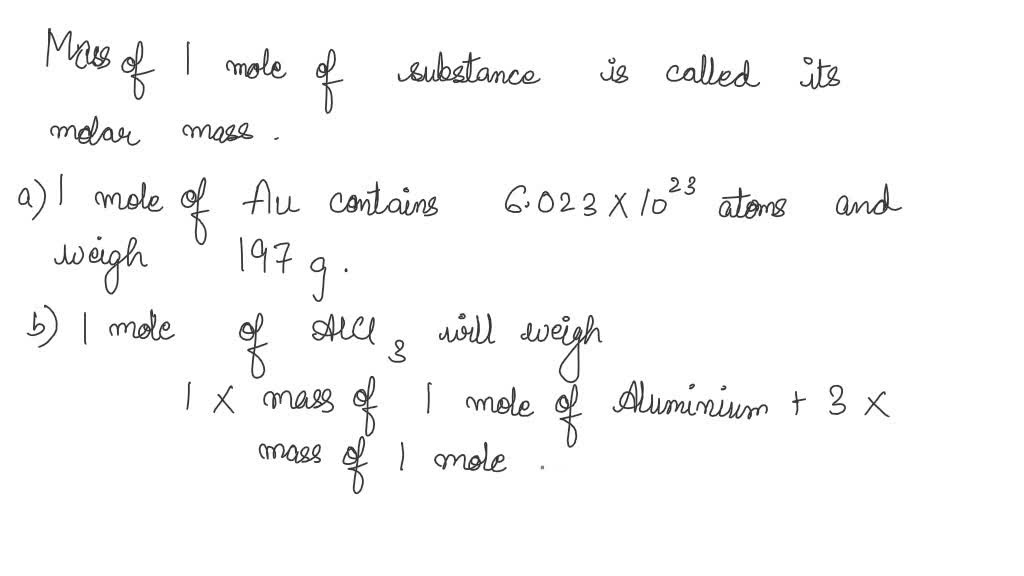 Mass of 1 mole of substance is called its
molar mass.
a) 1 mole of Au contains 6.023 X 10²³ atoms and
weigh 197 g.
b) 1 mole of AlCl₃ will weigh
1 X mass of 1 mole of Aluminium + 3 X
mass of 1 mole .